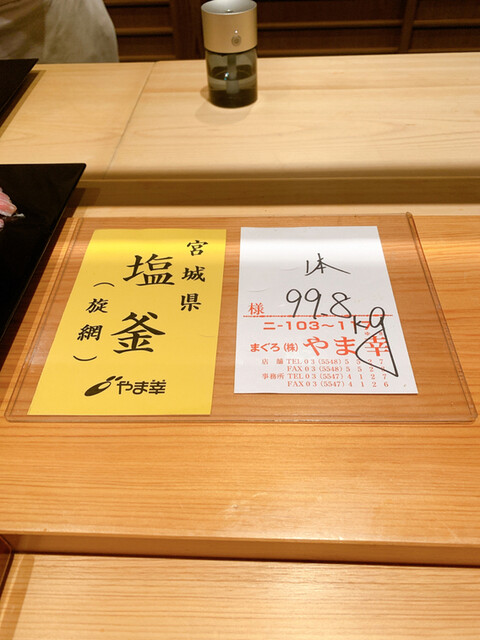 宮城県
塩釜
（旋網）
やま幸
1本
99.8kg
様
ニ-103〜1
まぐろ(株)やま幸
店舗 TEL 03 (5548) 5527
FAX 03 (5548) 552
事務所 TEL 03 (5547) 4127
FAX 03 (5547) 4126